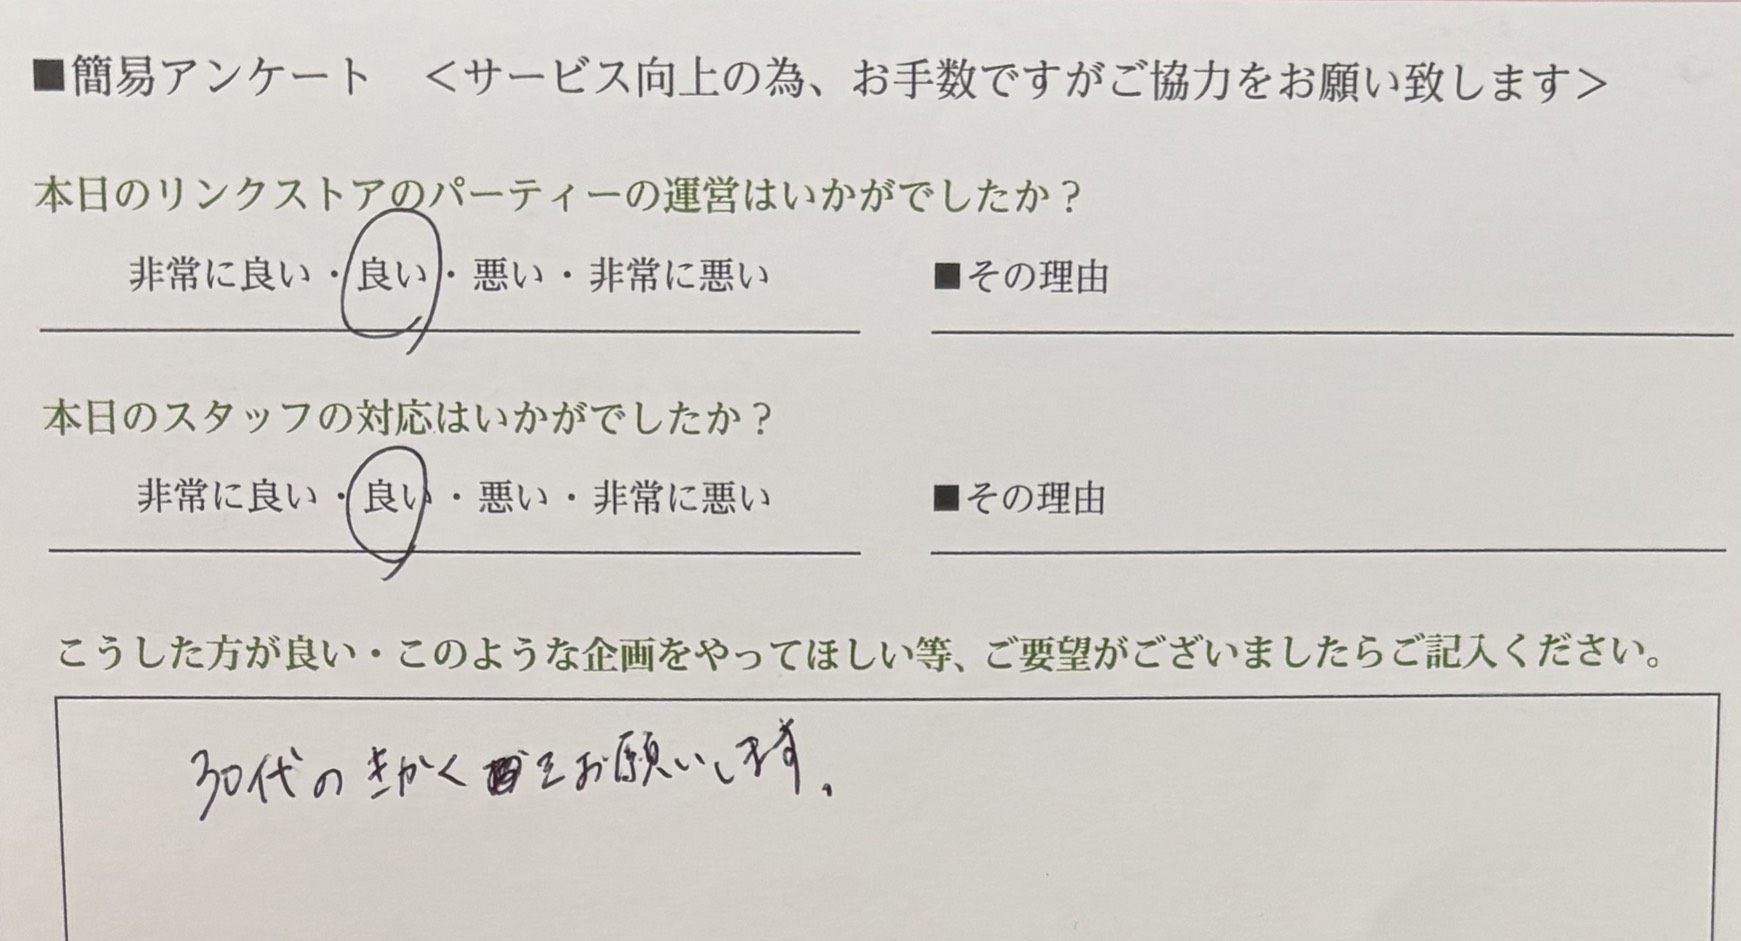 ■簡易アンケート ＜サービス向上の為、お手数ですがご協力をお願い致します＞
本日のリンクストアのパーティーの運営はいかがでしたか？
非常に良い・良い・悪い・非常に悪い ■その理由
本日のスタッフの対応はいかがでしたか？
非常に良い・良い・悪い・非常に悪い ■その理由
こうした方が良い・このような企画をやってほしい等、ご要望がございましたらご記入ください。
30代のきかくをお願いします。